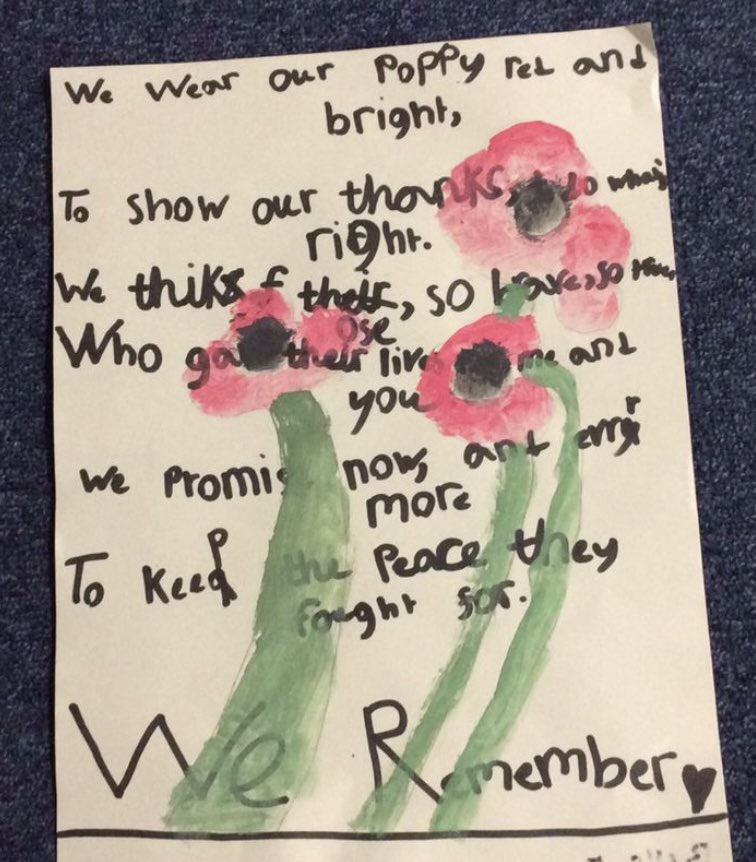 We Wear our Poppy red and
bright,
To show our thanks, to do what's
right.
We thiks of those, so brave, so
Who gave their lives me and
you
We promi now, and
more
To Keep the Peace they
fought for.
We Remember